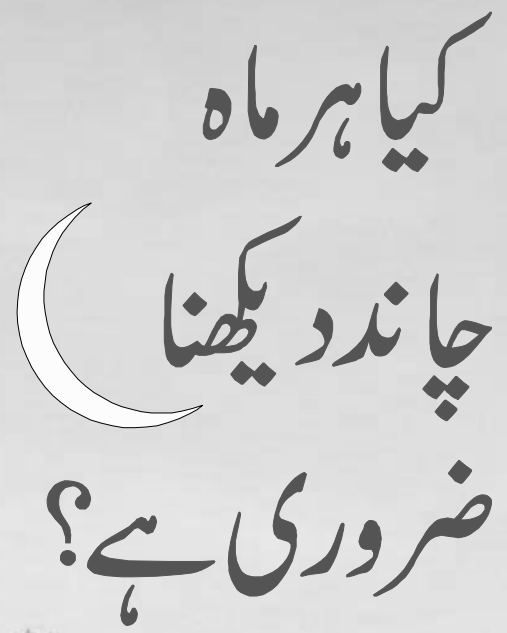 کیا ہر ماہ
چاند دیکھنا
ضروری ہے؟